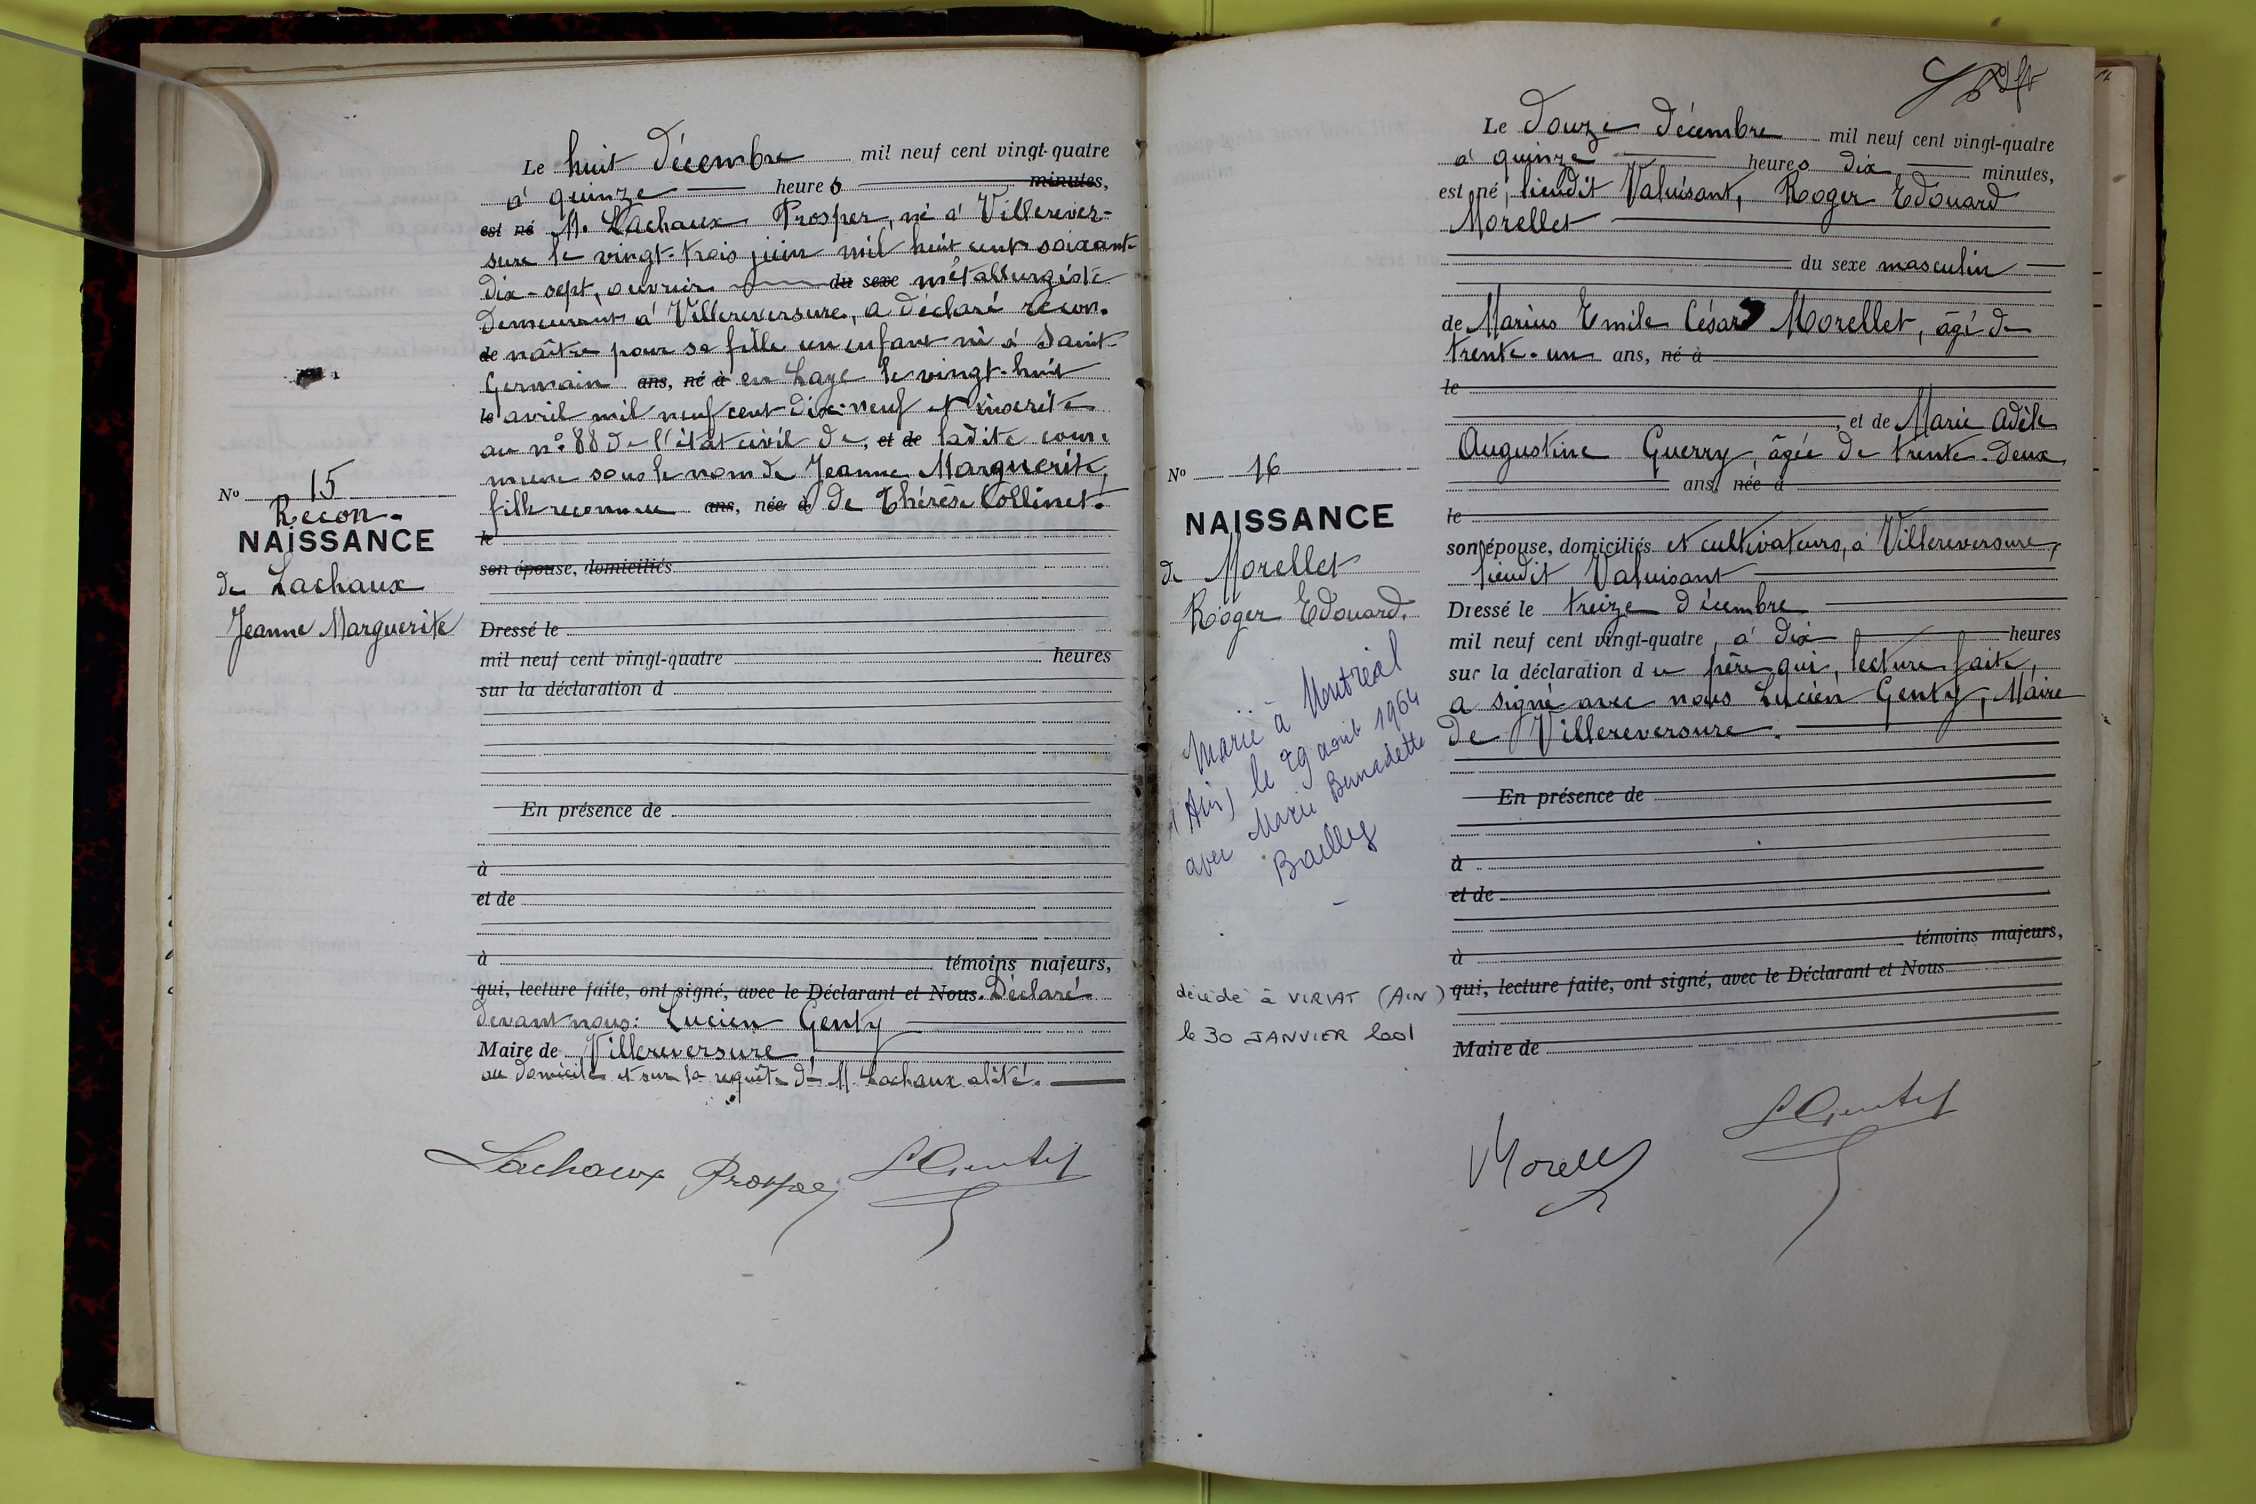 Le huit décembre mil neuf cent vingt-quatre
à quinze heures minutes,
est né M. Lachaux Prosper, né à Villerever-
sure le vingt-trois juin mil huit cent soixante
dix-sept, ouvrier du sexe métallurgiste
demeurant à Villereversure, a déclaré recon-
de naître pour sa fille un enfant né à Saint-
Germain ans, né à en Laye le vingt-huit
le avril mil neuf cent dix-neuf et inscrite
au n° 88 de l'état civil de, et de ladite com-
mune sous le nom de Jeanne Marguerite,
fille reconnue ans, née à de Thérèse Collinet.
le
son épouse, domiciliés
Dressé le
mil neuf cent vingt-quatre heures
sur la déclaration d
En présence de
à
et de
à témoins majeurs,
qui, lecture faite, ont signé, avec le Déclarant et Nous. Déclaré
devant nous: Lucien Genty
Maire de Villereversure
au domicile et sur la requête de M. Lachaux alité.
Lachaux Prosper LGenty
No 15
Recon-
NAISSANCE
de Lachaux
Jeanne Marguerite
Le douze décembre mil neuf cent vingt-quatre
à quinze heures dix minutes,
est né, lieudit Valuisant, Roger Edouard
Morellet
du sexe masculin
de Marius Emile César Morellet, âgé de
trente-un ans, né à
le
, et de Marie Adèle
Augustine Guerry, âgée de trente-deux
ans, née à
le
son épouse, domiciliés et cultivateurs, à Villereversure,
lieudit Valuisant
Dressé le treize décembre
mil neuf cent vingt-quatre, à dix heures
sur la déclaration du père qui, lecture faite,
a signé avec nous Lucien Genty, Maire
de Villereversure.
En présence de
à
et de
à témoins majeurs,
qui, lecture faite, ont signé, avec le Déclarant et Nous
Maire de
Morellet LGenty
No 16
NAISSANCE
de Morellet
Roger Edouard.
Marié à Montréal
(Ain) le 29 août 1964
avec Marie Bernadette
Bailly
décédé à VIRIAT (AIN)
le 30 JANVIER 2001